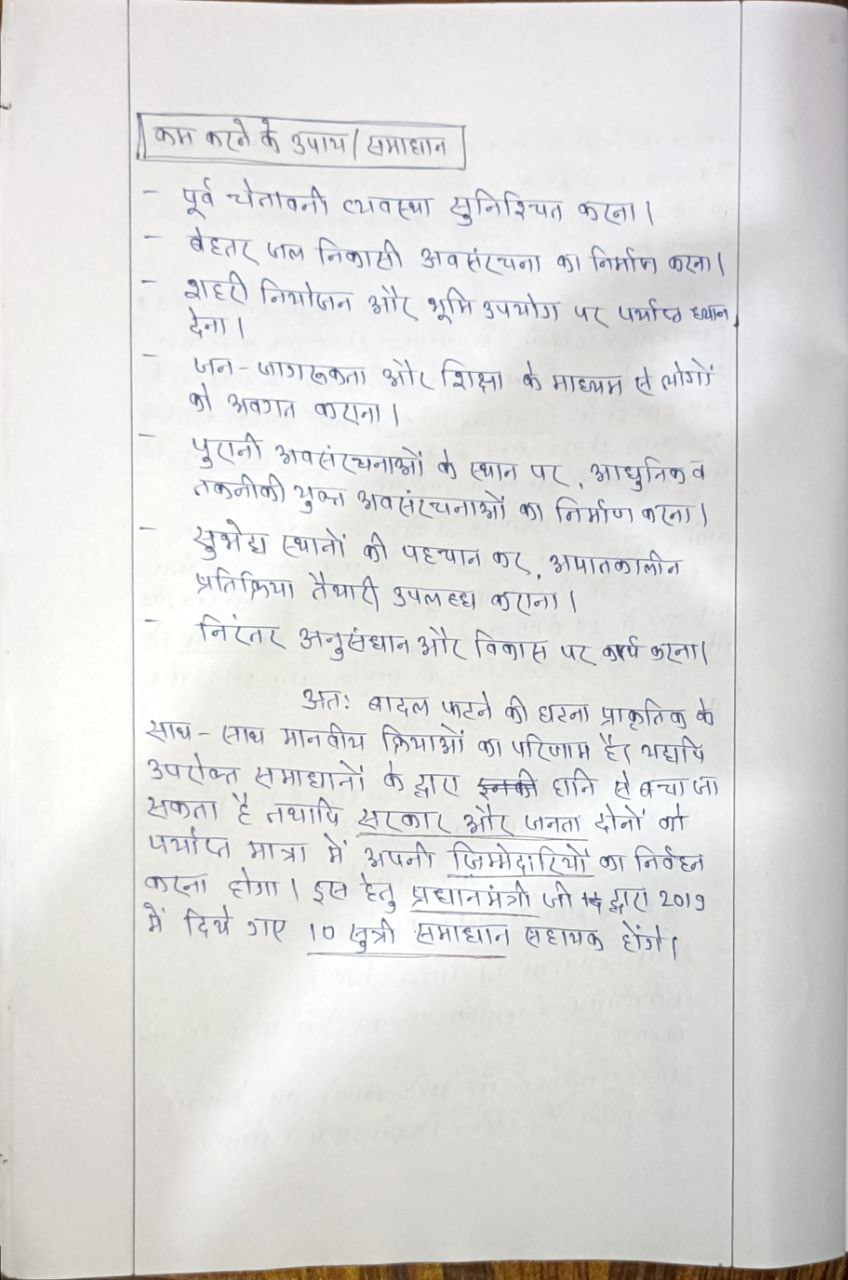 कम करने के उपाय / समाधान
- पूर्व चेतावनी व्यवस्था सुनिश्चित करना।
- बेहतर जल निकासी अवसंरचना का निर्माण करना।
- शहरी नियोजन और भूमि उपयोग पर पर्याप्त ध्यान
देना।
- जन-जागरूकता और शिक्षा के माध्यम से लोगों
को अवगत कराना।
- पुरानी अवसंरचनाओं के स्थान पर, आधुनिक व
तकनीकी युक्त अवसंरचनाओं का निर्माण करना।
- सुभेद्य स्थानों की पहचान कर, अपातकालीन
प्रतिक्रिया तैयारी उपलब्ध कराना।
- निरंतर अनुसंधान और विकास पर कार्य करना।
अतः बादल फटने की घटना प्राकृतिक के
साथ-साथ मानवीय क्रियाओं का परिणाम है। यद्यपि
उपरोक्त समाधानों के द्वारा इनकी हानि से बचा जा
सकता है तथापि सरकार और जनता दोनों को
पर्याप्त मात्रा में अपनी ज़िम्मेदारियों का निर्वहन
करना होगा। इस हेतु प्रधानमंत्री जी द्वारा 2019
में दिये गए 10 सूत्री समाधान सहायक होंगे।